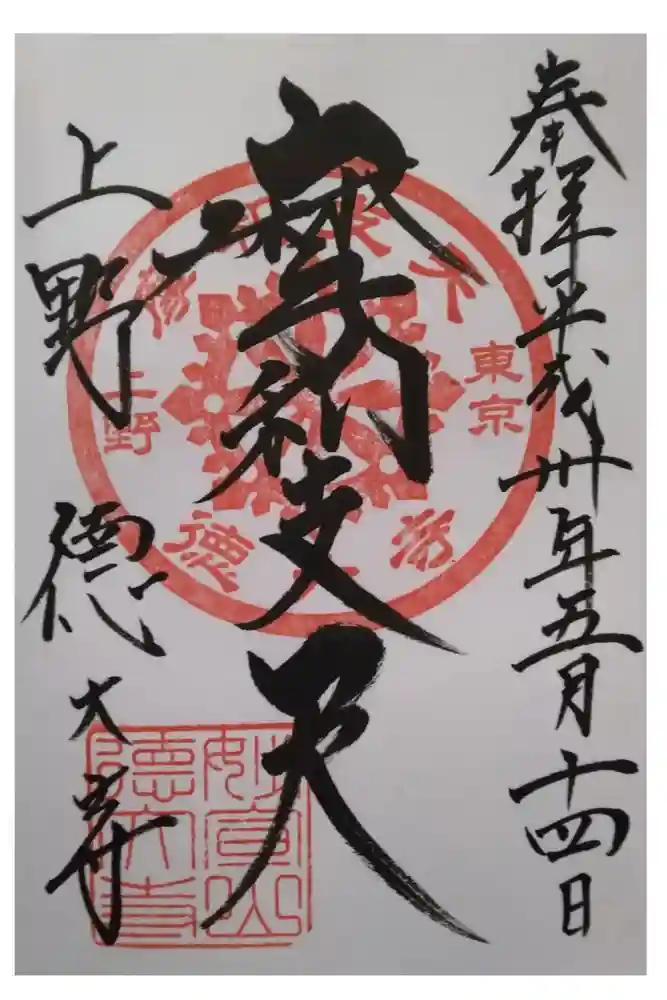 奉拝平成卅年五月十四日
摩利支天
上野徳大寺
摩利支天
東京
上野
徳大寺
妙宣山
徳大寺